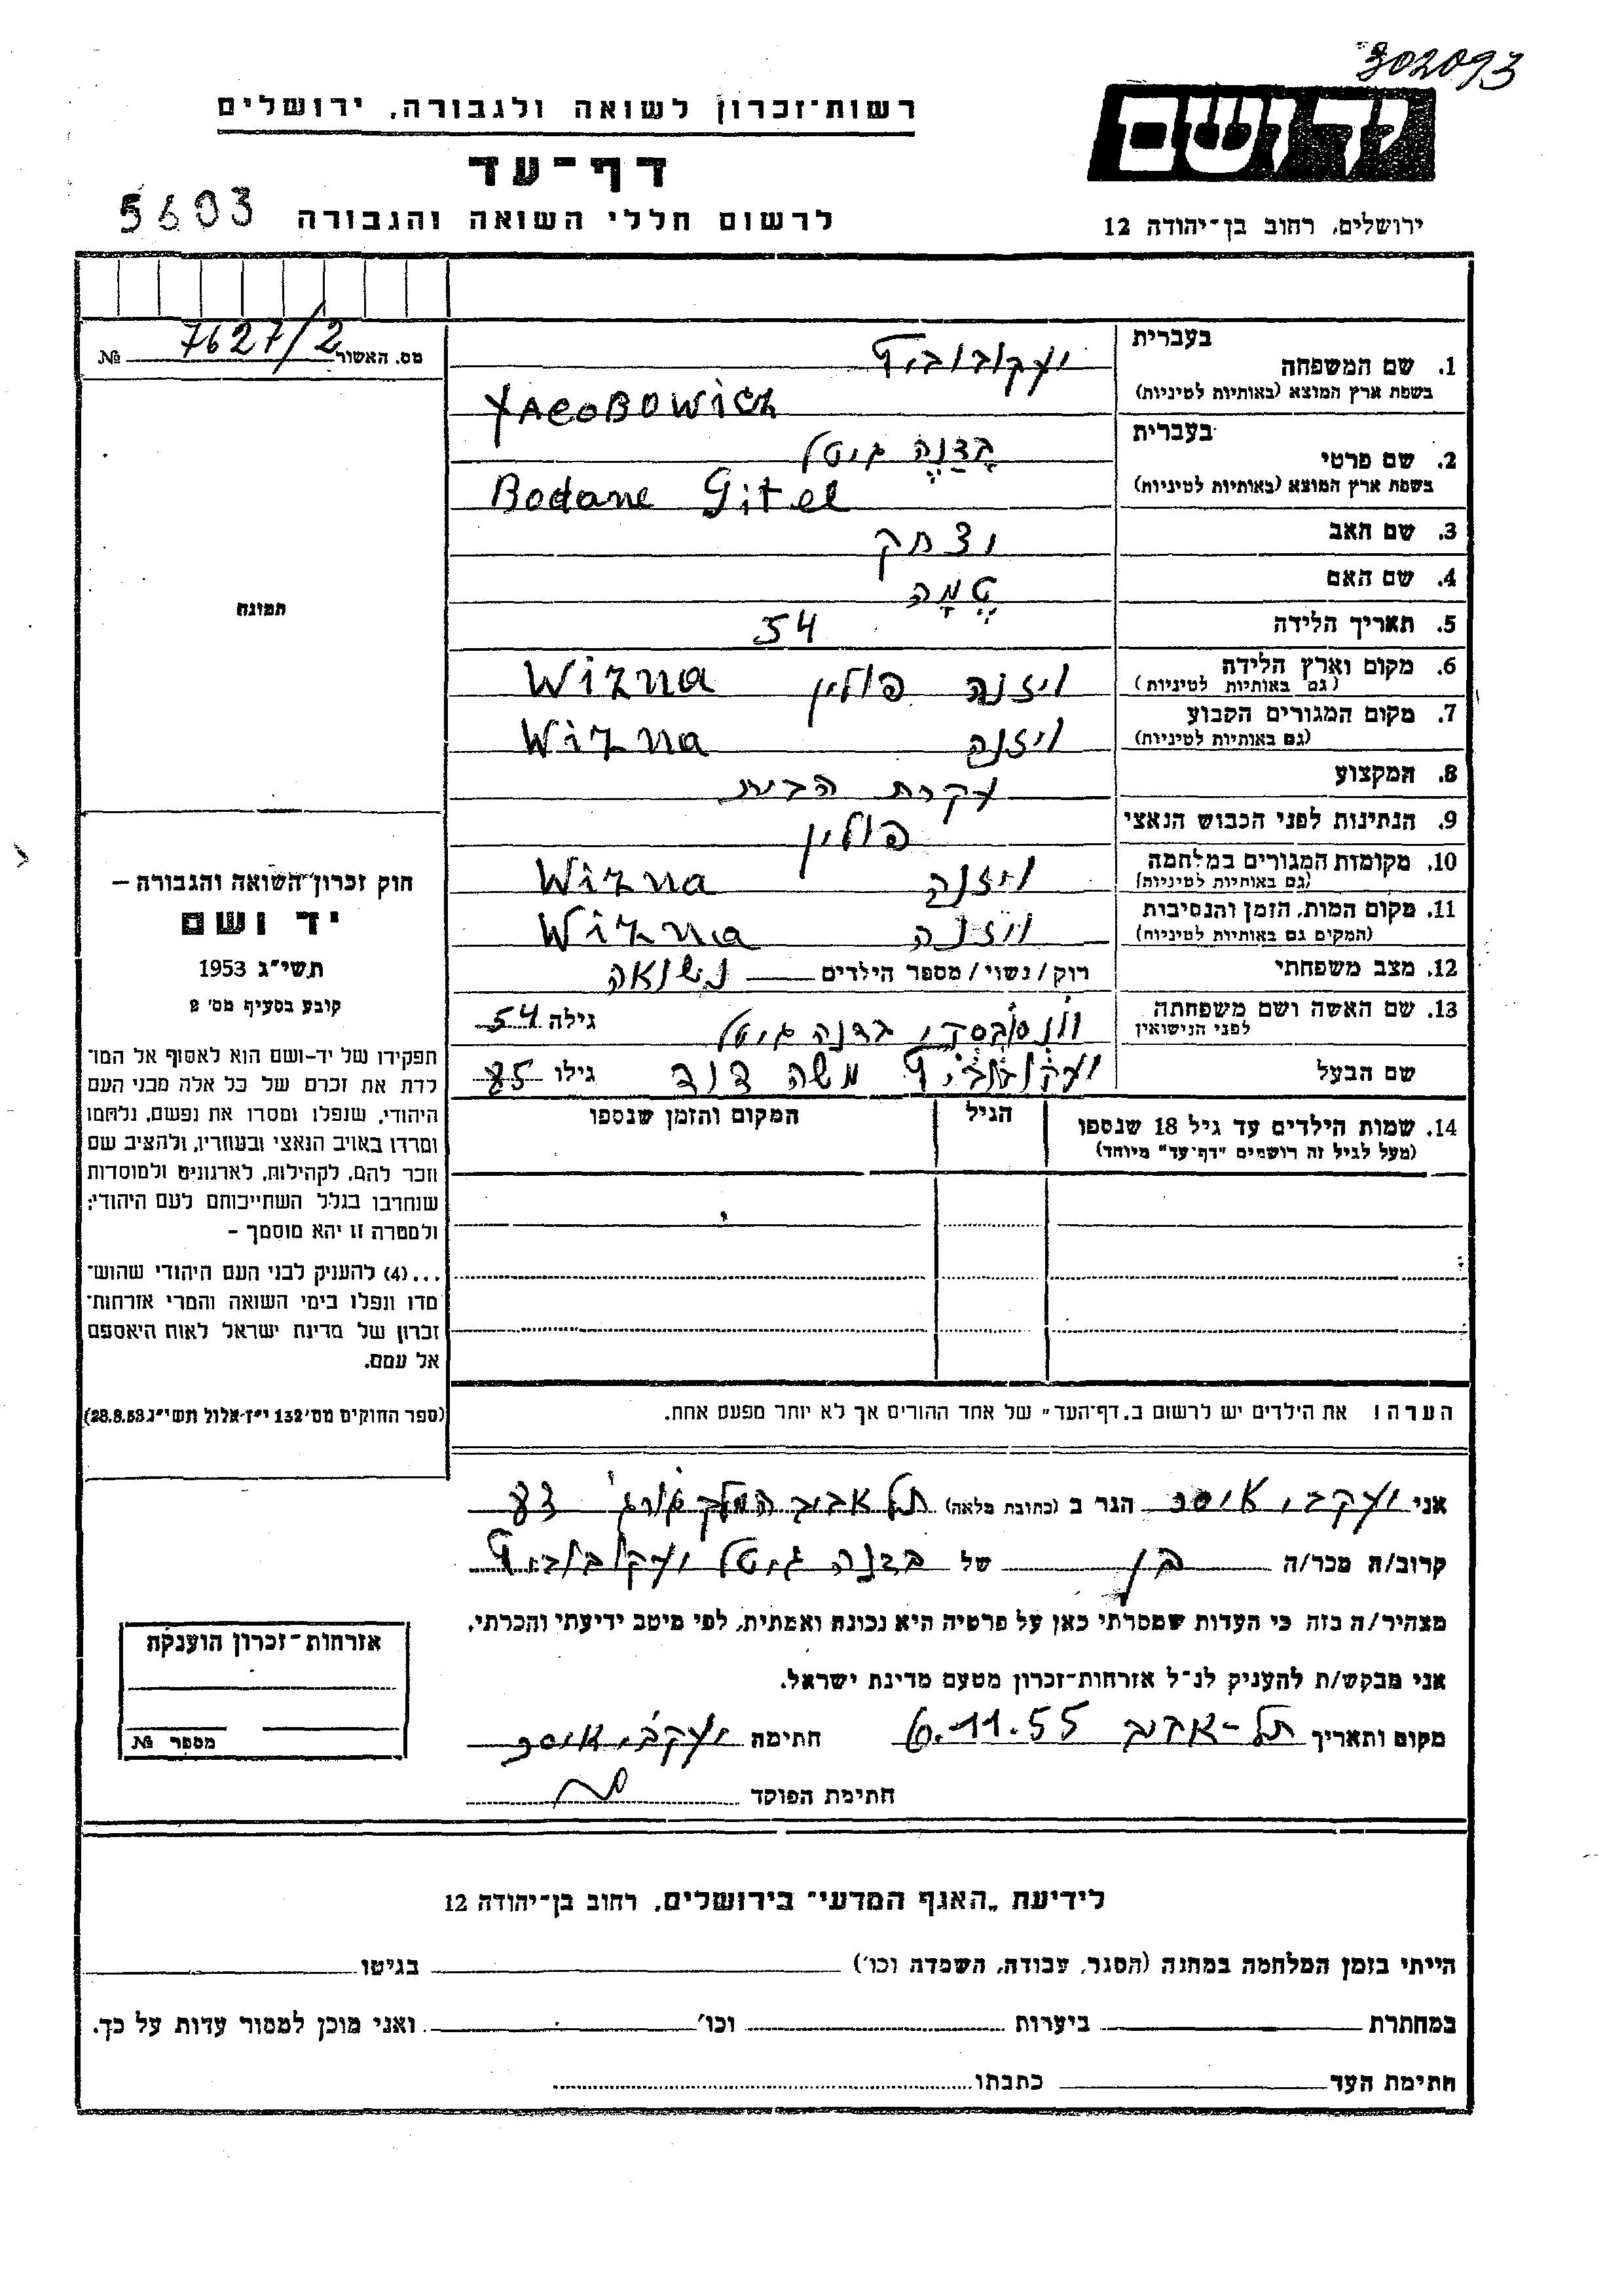 302093
רשות־זכרון לשואה ולגבורה, ירושלים
יד ושם
דף־עד
לרשום חללי השואה והגבורה 5603
ירושלים, רחוב בן־יהודה 12
מס. האשור 7627/2 №
בעברית
1. שם המשפחה יעקובוביץ
בשפת ארץ המוצא (באותיות לטיניות) YACOBOWICZ
בעברית
2. שם פרטי בָדַנֶה גיטל
בשפת ארץ המוצא (באותיות לטיניות) Bodane Gitel
3. שם האב יצחק
4. שם האם טֶמָה
5. תאריך הלידה 54
6. מקום וארץ הלידה ויזנה פולין Wizna
(גם באותיות לטיניות)
7. מקום המגורים הקבוע ויזנה Wizna
(גם באותיות לטיניות)
8. המקצוע עקרת הבית
9. הנתינות לפני הכבוש הנאצי פולין
10. מקומות המגורים במלחמה ויזנה Wizna
(גם באותיות לטיניות)
11. מקום המות, הזמן והנסיבות ויזנה Wizna
(המקום גם באותיות לטיניות)
12. מצב משפחתי רוק/נשוי/מספר הילדים נשואה
13. שם האשה ושם משפחתה בדנה גיטל גילה 54
לפני הנישואין
שם הבעל יעקובוביץ משה דוד גילו 85
14. שמות הילדים עד גיל 18 שנספו הגיל המקום והזמן שנספו
(מעל לגיל זה רושמים "דף־עד" מיוחד)
תמונה
חוק זכרון השואה והגבורה –
יד ושם
תשי"ג 1953
קובע בסעיף מס' 2
תפקידו של יד-ושם הוא לאסוף אל המו־
לדת את זכרם של כל אלה מבני העם
היהודי, שנפלו ומסרו את נפשם, נלחמו
ומרדו באויב הנאצי ובעוזריו, ולהציב שם
וזכר להם, לקהילות, לארגונים ולמוסדות
שנחרבו בגלל השתייכותם לעם היהודי;
ולמטרה זו יהא מוסמך –
...(4) להעניק לבני העם היהודי שהוש־
מדו ונפלו בימי השואה והמרי אזרחות־
זכרון של מדינת ישראל לאות היאספם
אל עמם.
(ספר החוקים מס' 132 י"ז אלול תשי"ג 28.8.53)
הערה! את הילדים יש לרשום ב„דף־העד" של אחד ההורים אך לא יותר מפעם אחת.
אני יעקבי איסר הגר ב (כתובת מלאה) תל אביב המלך גורג' 83
קרוב/ה מכר/ה בן של בדנה גיטל יעקובוביץ
מצהיר/ה בזה כי העדות שמסרתי כאן על פרטיה היא נכונה ואמתית, לפי מיטב ידיעתי והכרתי.
אני מבקש/ת להעניק לנ"ל אזרחות־זכרון מטעם מדינת ישראל.
מקום ותאריך תל-אביב 6.11.55 חתימה יעקבי איסר
חתימת הפוקד
אזרחות־זכרון הוענקה
מספר №
לידיעת „האגף המדעי" בירושלים, רחוב בן־יהודה 12
הייתי בזמן המלחמה במחנה (הסגר, עבודה, השמדה וכו') בגיטו
במחתרת ביערות וכו' ואני מוכן למסור עדות על כך.
חתימת העד כתבתו